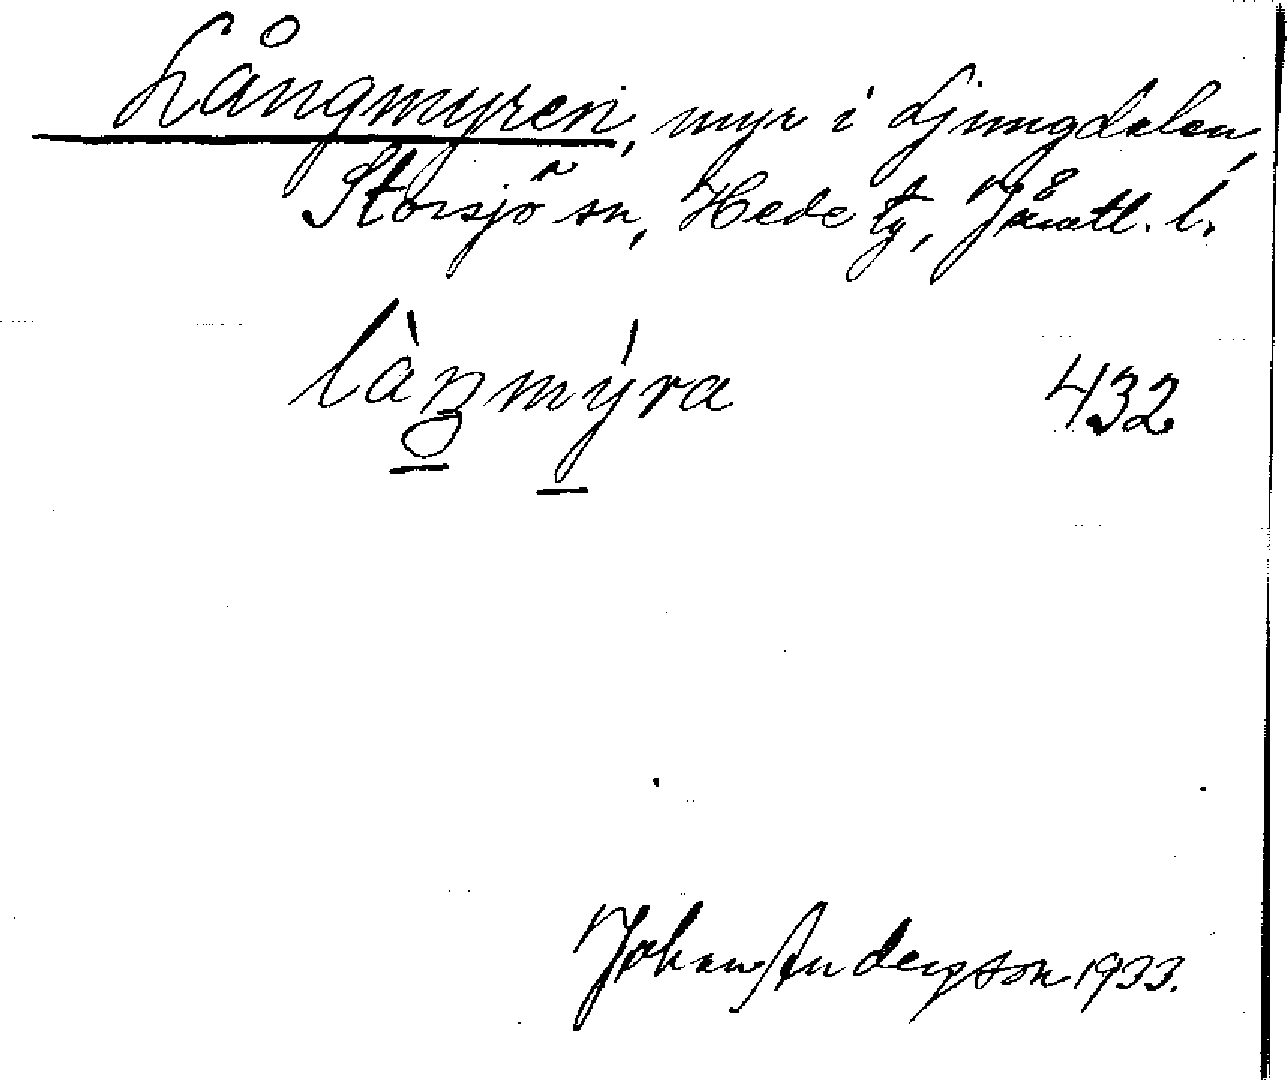 Långmyren, myr i Ljungdalen,
Storsjö sn, Hede tg, Jämtl. l.
làŋmýra 432
Johan Andersson 1933.